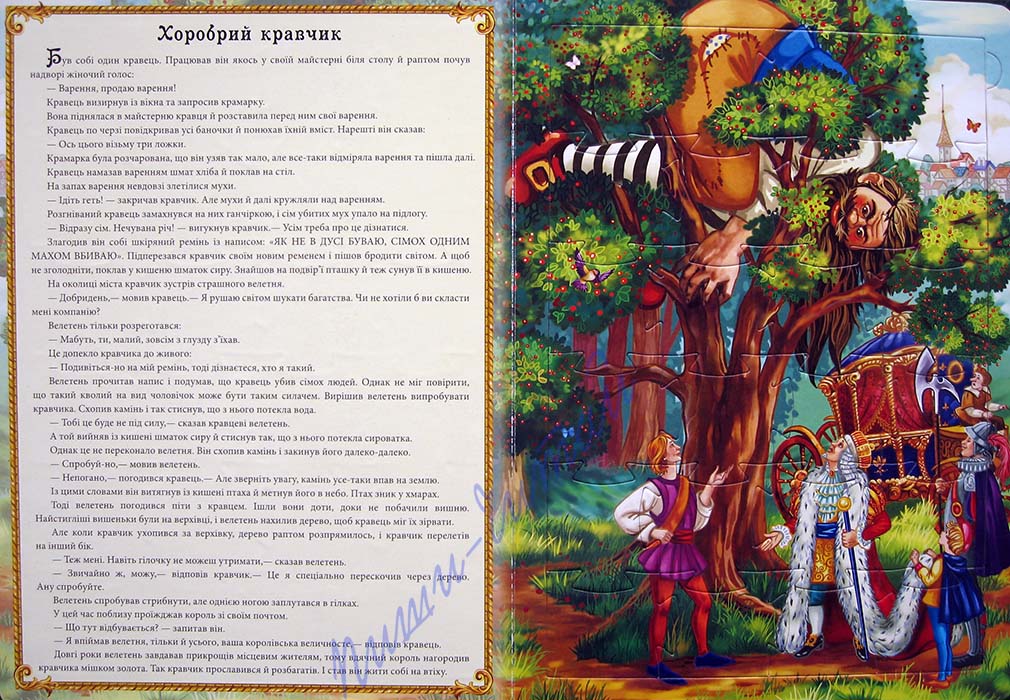 Хоробрий кравчик
Був собі один кравець. Працював він якось у своїй майстерні біля столу й раптом почув
надворі жіночий голос:
— Варення, продаю варення!
Кравець визирнув із вікна та запросив крамарку.
Вона піднялася в майстерню кравця й розставила перед ним свої варення.
Кравець по черзі повідкривав усі баночки й понюхав їхній вміст. Нарешті він сказав:
— Ось цього візьму три ложки.
Крамарка була розчарована, що він узяв так мало, але все-таки відміряла варення та пішла далі.
Кравець намазав варенням шмат хліба й поклав на стіл.
На запах варення невдовзі злетілися мухи.
— Ідіть геть! — закричав кравчик. Але мухи й далі кружляли над варенням.
Розгніваний кравець замахнувся на них ганчіркою, і сім убитих мух упало на підлогу.
— Відразу сім. Нечувана річ! — вигукнув кравчик.— Усім треба про це дізнатися.
Злагодив він собі шкіряний ремінь із написом: «ЯК НЕ В ДУСІ БУВАЮ, СІМОХ ОДНИМ
МАХОМ ВБИВАЮ». Підперезався кравчик своїм новим ременем і пішов бродити світом. А щоб
не зголодніти, поклав у кишеню шматок сиру. Знайшов на подвір’ї пташку й теж сунув її в кишеню.
На околиці міста кравчик зустрів страшного велетня.
— Добридень,— мовив кравець.— Я рушаю світом шукати багатства. Чи не хотіли б ви скласти
мені компанію?
Велетень тільки розреготався:
— Мабуть, ти, малий, зовсім з глузду з’їхав.
Це допекло кравчика до живого:
— Подивіться-но на мій ремінь, тоді дізнаєтеся, хто я такий.
Велетень прочитав напис і подумав, що кравець убив сімох людей. Однак не міг повірити,
що такий кволий на вид чоловічок може бути таким силачем. Вирішив велетень випробувати
кравчика. Схопив камінь і так стиснув, що з нього потекла вода.
— Тобі це буде не під силу,— сказав кравцеві велетень.
А той вийняв із кишені шматок сиру й стиснув так, що з нього потекла сироватка.
Однак це не переконало велетня. Він схопив камінь і закинув його далеко-далеко.
— Спробуй-но,— мовив велетень.
— Непогано,— погодився кравець.— Але зверніть увагу, камінь усе-таки впав на землю.
Із цими словами він витягнув із кишені птаха й метнув його в небо. Птах зник у хмарах.
Тоді велетень погодився піти з кравцем. Ішли вони доти, доки не побачили вишню.
Найстигліші вишеньки були на верхівці, і велетень нахилив дерево, щоб кравець міг їх зірвати.
Але коли кравчик ухопився за верхівку, дерево раптом розпрямилось, і кравчик перелетів
на інший бік.
— Теж мені. Навіть гілочку не можеш утримати,— сказав велетень.
— Звичайно ж, можу,— відповів кравчик.— Це я спеціально перескочив через дерево.
Ану спробуйте.
Велетень спробував стрибнути, але однією ногою заплутався в гілках.
У цей час поблизу проїжджав король зі своїм почтом.
— Що тут відбувається? — запитав він.
— Я впіймав велетня, тільки й усього, ваша королівська величносте,— відповів кравець.
Довгі роки велетень завдавав прикрощів місцевим жителям, тому вдячний король нагородив
кравчика мішком золота. Так кравчик прославився й розбагатів. І став він жити собі на втіху.